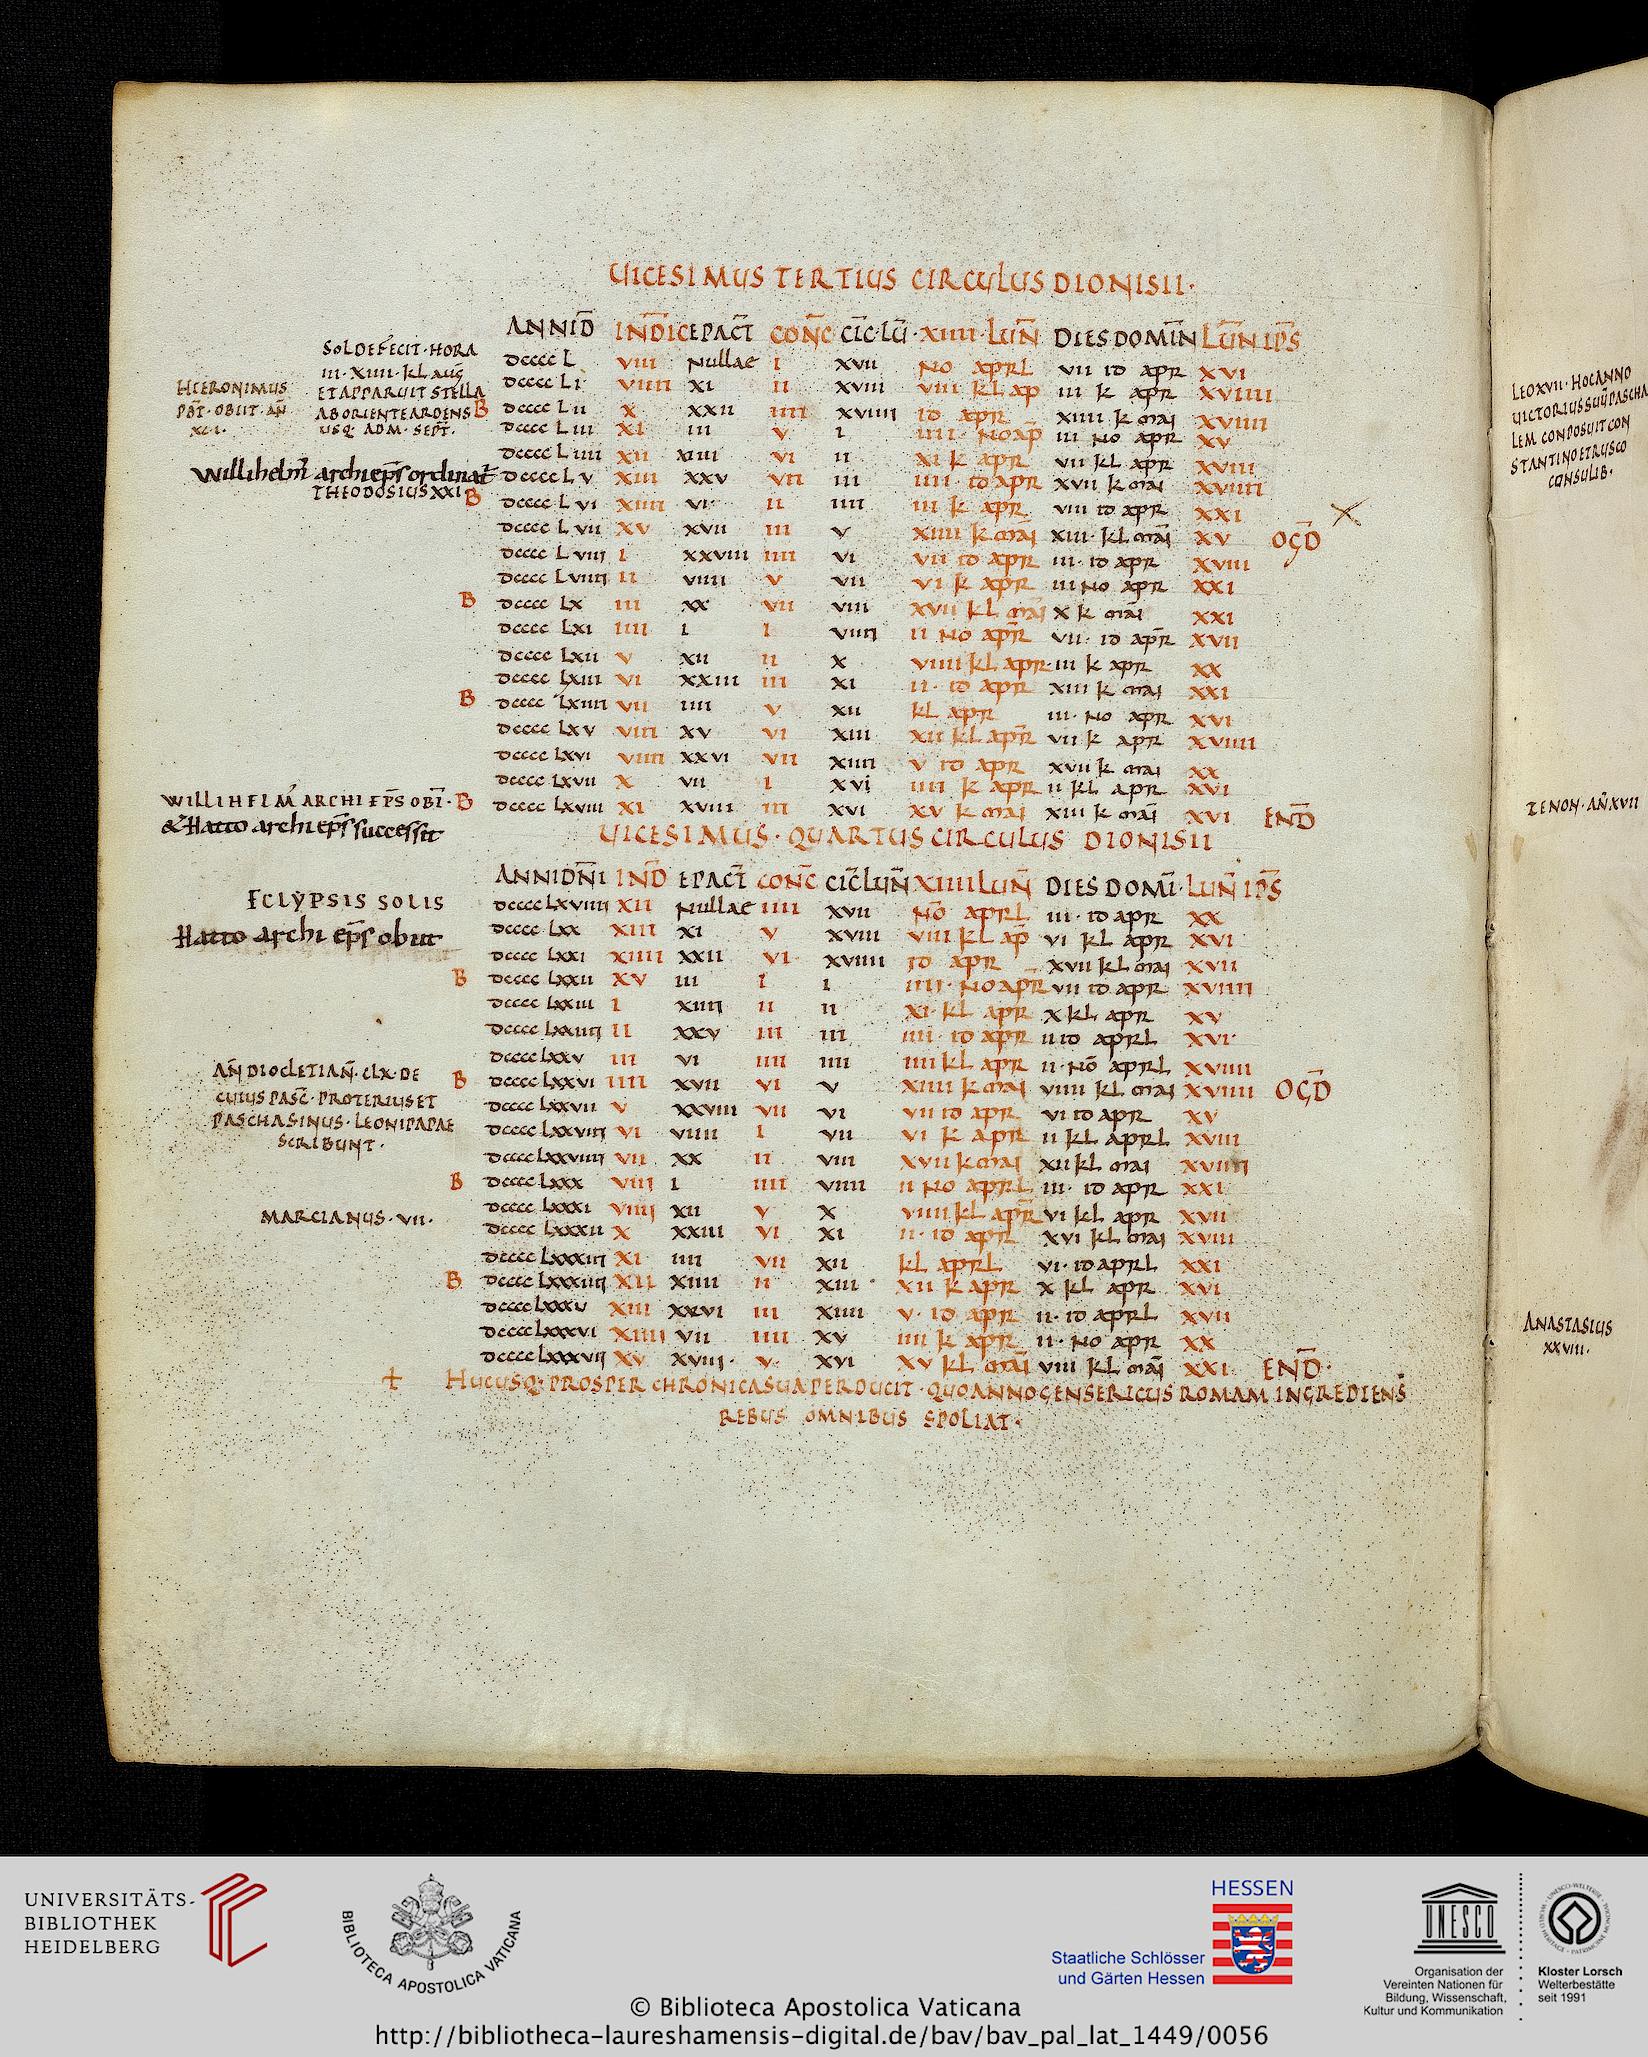 UICESIMUS TERTIUS CIRCULUS DIONISII·
ANNI D̄ INDIC EPACT̄ CONC̄ CIC̄·LŪ ·XIIII·LUN̄ DIES DOMIN̄ LUN̄ IPS̄
dcccc L VIII Nullae I xvii NO APRL vii id apr XVI
dcccc Li VIIII xi II xviii VIII KL AP iii k apr XVIIII
B dcccc Lii X xxii IIII xviiii ID APR xiiii k mai XVIIII
dcccc Liii XI iii V i IIII NO AP̄ iii No apr XV
dcccc Liiii XII xiiii VI ii XI K APR vii kl apr XVIII
dcccc Lv XIII xxv VII iii IIII ID APR xvii k mai XVIIII
B dcccc Lvi XIIII vi II iiii III K APR viii id apr XXI
dcccc Lvii XV xvii III v XIIII K MAI xiii· kl mai XV OGD̄
dcccc Lviii I xxviii IIII vi VII ID APR iii· id apr XVIII
dcccc Lviiii II viiii V vii VI K APR iii No apr XXI
B dcccc Lx III xx VII viii XVII KL MAI x k mai XXI
dcccc Lxi IIII i I viiii II NO APR vii· id apr XVII
dcccc Lxii V xii II x VIIII KL APR iii k apr XX
dcccc Lxiii VI xxiii III xi II· ID APR xiii k mai XXI
B dcccc Lxiiii VII iiii V xii KL APR iii· No apr XVI
dcccc Lxv VIII xv VI xiii XII KL APR vii k apr XVIIII
dcccc Lxvi VIIII xxvi VII xiiii V ID APR xvii k mai XX
dcccc Lxvii X vii I xvi IIII K APR ii kl apr XVI
B dcccc Lxviii XI xviii III xvi XV K MAI xiii k mai XVI END̄
SOL DEFECIT·HORA
III·XIIII·KL AUG
ET APPARUIT STELLA
AB ORIENTE ARDENS
USQ· AD M· SEPT̄·
HIERONIMUS
PB̄T·OBIIT·AN̄
XCI·
Willihelm̄ archiep̄s ordinat̄
THEODOSIUS XXI
WILLIHELM̄ ARCHIEP̄S OBĪ·
& Hatto archiep̄s successit
UICESIMUS·QUARTUS CIRCULUS DIONISII
ANNI DN̄I IND̄ EPACT̄ CONC̄ CIC̄ LUN̄ XIIII LUN̄ DIES DOMĪ· LUN̄ IPS̄
dcccc Lxviiii XII Nullae IIII xvii NO APRL iii· id apr XX
dcccc Lxx XIII xi V xviii VIII KL AP̄ vi kl apr XVI
dcccc Lxxi XIIII xxii VI xviiii ID APR xvii kl mai XVII
B dcccc Lxxii XV iii I i IIII· NO APR vii id apr XVIIII
dcccc Lxxiii I xiiii II ii XI· KL APR x kl apr XV
dcccc Lxxiiii II xxv III iii IIII ID APR ii id aprL XVI·
dcccc Lxxv III vi IIII iiii IIII KL APR ii· No aprL XVIIII
B dcccc Lxxvi IIII xvii VI v XIIII K MAI viiii kl mai XVIIII OGD̄
dcccc Lxxvii V xxviii VII vi VII ID APR vi id apr XV
dcccc Lxxviii VI viiii I vii VI K APR ii kl aprL XVIII
dcccc Lxxviiii VII xx II viii XVII K MAI xii kl mai XVIIII
B dcccc Lxxx VIII i IIII viiii II NO APRL iii· id apr XXI
dcccc Lxxxi VIIII xii V x VIIII KL APR vi kl apr XVII
dcccc Lxxxii X xxiii VI xi II· ID APR xvi kl mai XVIII
dcccc Lxxxiii XI iiii VII xii KL APRL vi· id aprL XXI
B dcccc Lxxxiiii XII xiiii II xiii XII K APR x kl apr XVI
dcccc Lxxxv XIII xxvi III xiiii V· ID APR ii· id aprL XVII
dcccc Lxxxvi XIIII vii IIII xv IIII K APR ii· No apr XX
dcccc Lxxxvii XV xviii· V· xvi XV KL MAI viii kl mai XXI END̄·
ECLYPSIS SOLIS
Hatto archiep̄s obiit
AN̄ DIOCLETIAN̄·CLX·DE
CUIUS PASC̄·PROTERIUS ET
PASCHASINUS·LEONI PAPAE
SCRIBUNT·
MARCIANUS·VII·
+ HUCUSQ· PROSPER CHRONICA SUA PERDUCIT·QUO ANNO GENSERICUS ROMAM INGREDIENS
REBUS OMNIBUS SPOLIAT·
LEO XVII·HOC ANNO
UICTORIUS SUU̅ PASCHA
LEM CONPOSUIT CON
STANTINO ET RUSCO
CONSULIB·
ZENON·AN̄ XVII
ANASTASIUS
XXVIII·
UNIVERSITÄTS-
BIBLIOTHEK
HEIDELBERG
BIBLIOTECA APOSTOLICA VATICANA
HESSEN
Staatliche Schlösser
und Gärten Hessen
UNESCO
Organisation der
Vereinten Nationen für
Bildung, Wissenschaft,
Kultur und Kommunikation
Kloster Lorsch
Welterbestätte
seit 1991
© Biblioteca Apostolica Vaticana
http://bibliotheca-laureshamensis-digital.de/bav/bav_pal_lat_1449/0056